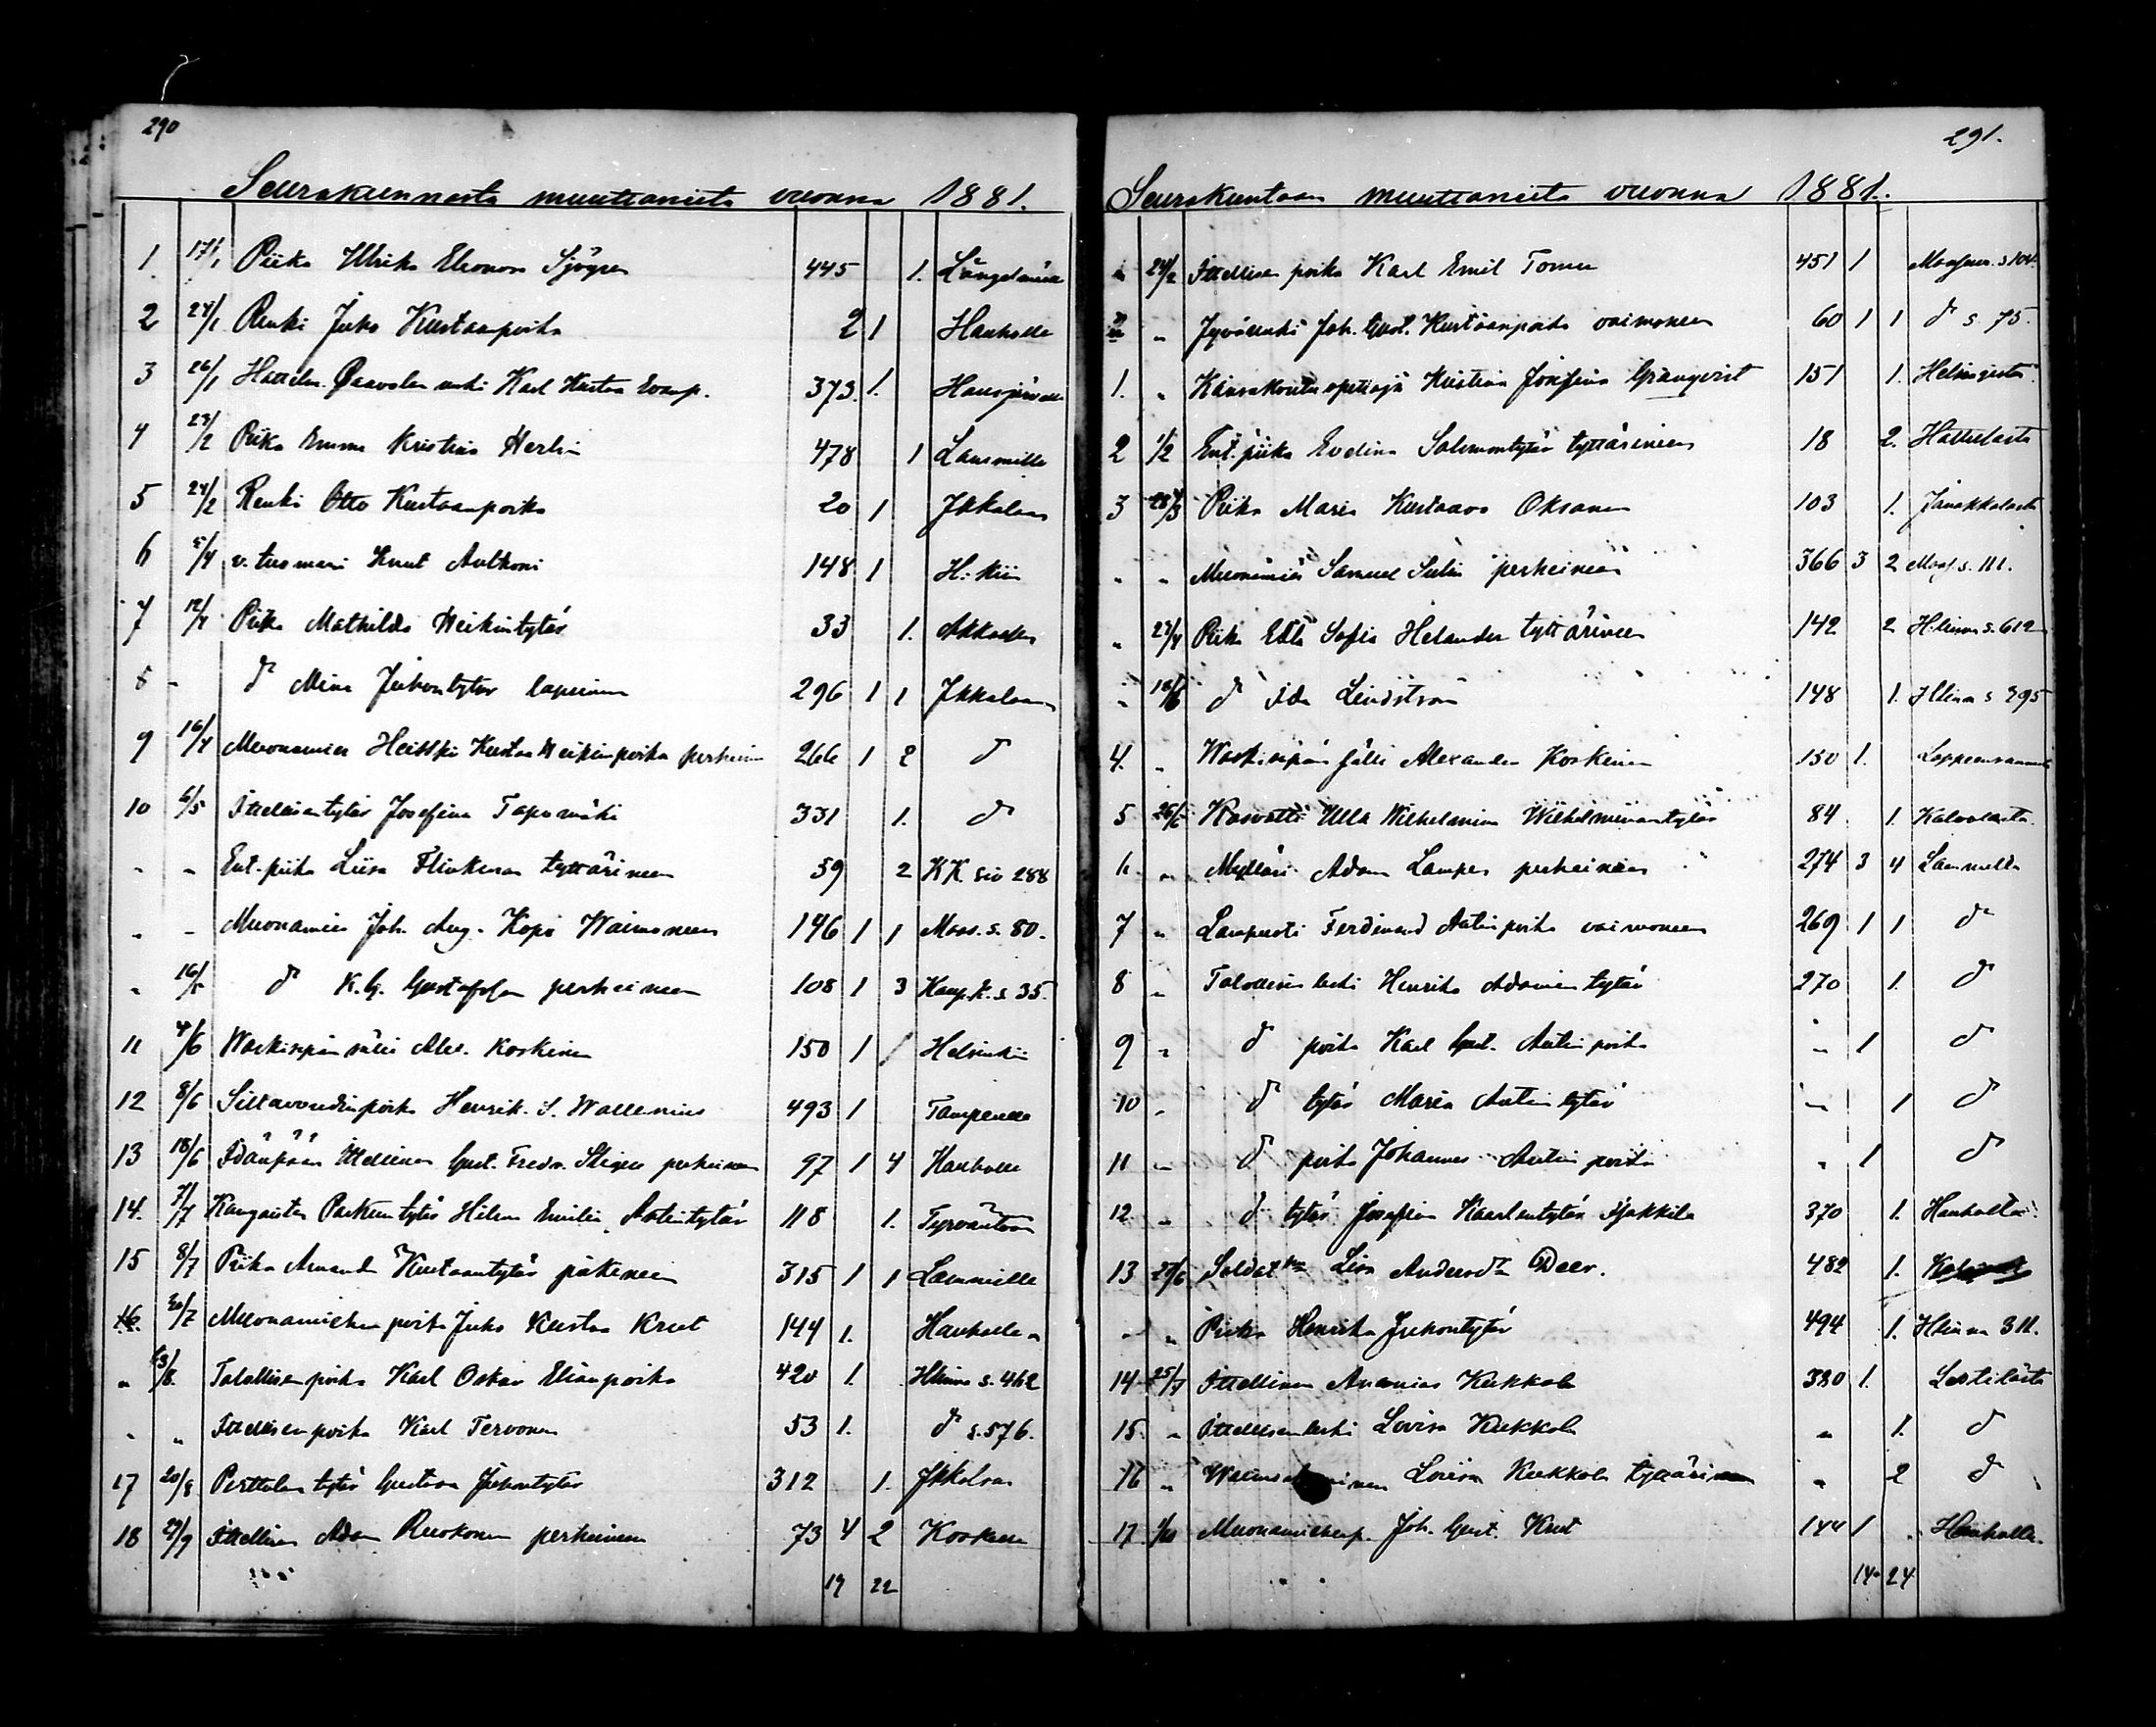 290
Seurakunnasta muuttaneita vuonna 1881.
1. 17/1 Piika Ulrika Eleonora Sjögren 445 1. Längelmäelle
2 24/1 Renki Juho Kustaanpoika 2 1 Hauholle
3 26/1 Karl Kustaa 373. 1. Hausjärvelle
4 23/2 Piika Emma Kristina Herlin 478 1 Lammille
5 24/2 Renki Otto Kustaanpoika 20 1 Jkkalaan
6 5/4 v. tuomari Knut Anthoni 148 1 H:kiin
7 12/4 Piika Mathilda Heikintytär 33 1. Akkaalle
8 - d:o Mina Juhontytär lapsineen 296 1 1 Jkkalaan
9 16/4 Muonamies Heikki Kustaa Heikinpoika perheineen 266 1 2 d:o
10 6/5 Ittellisentytär Josefina Tapiomäki 331 1. d:o
" " Ent. piika Liisa Flinkman tyttärineen 59 2 KK. siv 288
" " Muonamies Joh. Aug. Köpi Waimoneen 146 1 1 Maas. s. 80.
" 16/5 d:o K. G. Gustafsson perheineen 108 1 3 Kaup.k. s. 35.
11 4/6 Waskisepän sälli Alex. Koskinen 150 1 Helsinkiin
12 8/6 Siltavoudinpoika Henrik. S. Wallenius 493 1 Tampereelle
13 18/6 Ittellinen Gust. Fredr. perheineen 97 1 4 Hauholle
14. 7/7 Kangastan Hilma Emilia Antintytär 118 1. Tyrväntöön
15 8/7 Piika Amanda Kustaantytär poikineen 315 1 1 Lammille
16. 20/7 Muonamiehen poika Juho Kustaa Krut 144 1. Hauholle
" 13/8. Talollisen poika Karl Oskar Elianpoika 420 1. Hlinna s. 462
" " Ittellisen poika Karl Tervonen 53 1. d:o s. 576.
17 20/8 Perttulan tytär Gustava Juhontytär 312 1. Jkkalaan
18 29/9 Ittellinen Adam Ruokonen perheineen 73 4 2 Koskelle
19 22
291.
Seurakuntaan muuttaneita vuonna 1881.
" 24/2 Ittellisen poika Karl Emil Tomen 451 1 s 104.
" " Joh. Gust. Kustaanpoika vaimoneen 60 1 1 d:o s. 75.
1. " Kansakoulun opettaja Kristina Josefina Granqvist 151 1. Helsingistä
2 1/2 Ent. piika Evelina Salomontytär tyttärineen 18 2. Hattulasta
3 28/3 Piika Maria Kustaava Oksanen 103 1. Janakkalasta
" " Muonamies Samuel Sulin perheineen 366 3 2 Maas. s. 111.
" 27/4 Piika Edla Sofia Helander tyttärineen 142 2 Hlinna s. 612
" 18/6 d:o Ida Lindström 148 1. Hlinna s 395
4. " Waskisepän sälli Alexander Koskinen 150 1. Lappeenrannasta
5 26/6 Kasvatti Ulla Wilhelmina Wilhelmiinantytär 84 1. Kalvolasta
6 " Mylläri Adam Lampen perheineen 274 3 4 Lammilta
7 " Lampuoti Ferdinand Antinpoika vaimoneen 269 1 1 d:o
8 " Talollisen leski Henrika Adamintytär 270 1. d:o
9 " d:o poika Karl Gust. Antinpoika " 1 d:o
10 " d:o tytär Maria Antintytär " 1 d:o
11 " d:o poika Johannes Antinpoika " 1 d:o
12 " d:o tytär Josefina Kaarlentytär 370 1. Hauholta
13 27/6 Lisa Andersd:r 482 1.
" " Piika Henrika Juhontytär 494 1. Hlinna 311.
14 25/7 Ittellinen Ananias Kukkola 380 1. Lestilästä
15. " Ittellisen leski Lovisa Kukkola " 1. d:o
16 " Lovisa Kukkola tyttärineen " 2 d:o
17 1/10 Muonamiehen p. Joh. Gust. Krut 144 1 " Hauholta.
14 24